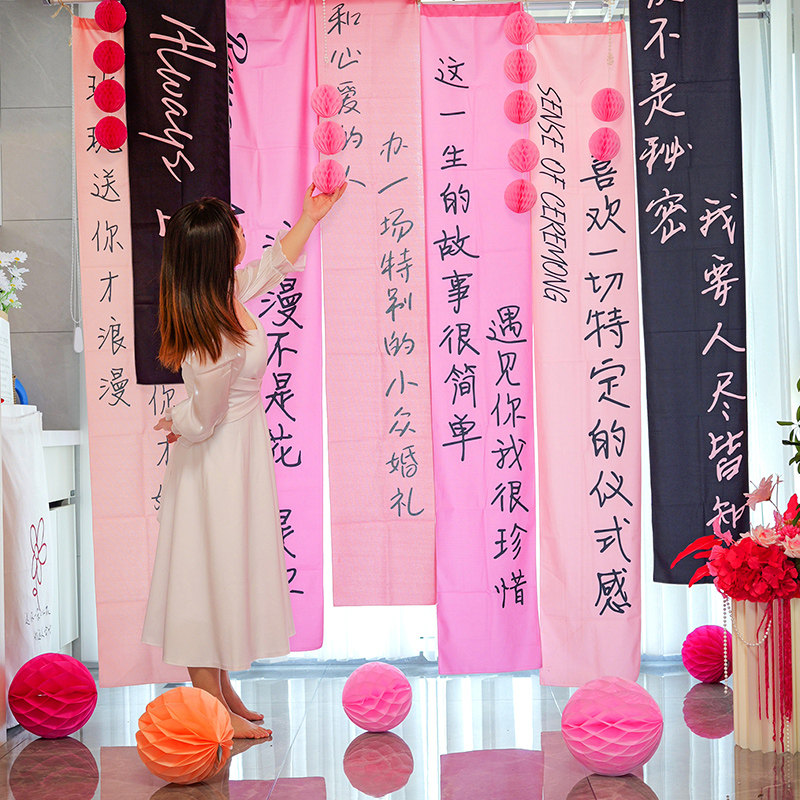 瑰
送你才浪漫
Always
你才
漫不是花
和心爱的人
办一场特别的小众婚礼
这一生的故事很简单
遇见你我很珍惜
SENSE OF CEREMONG
喜欢一切特定的仪式感
不是秘密
我要人尽皆知